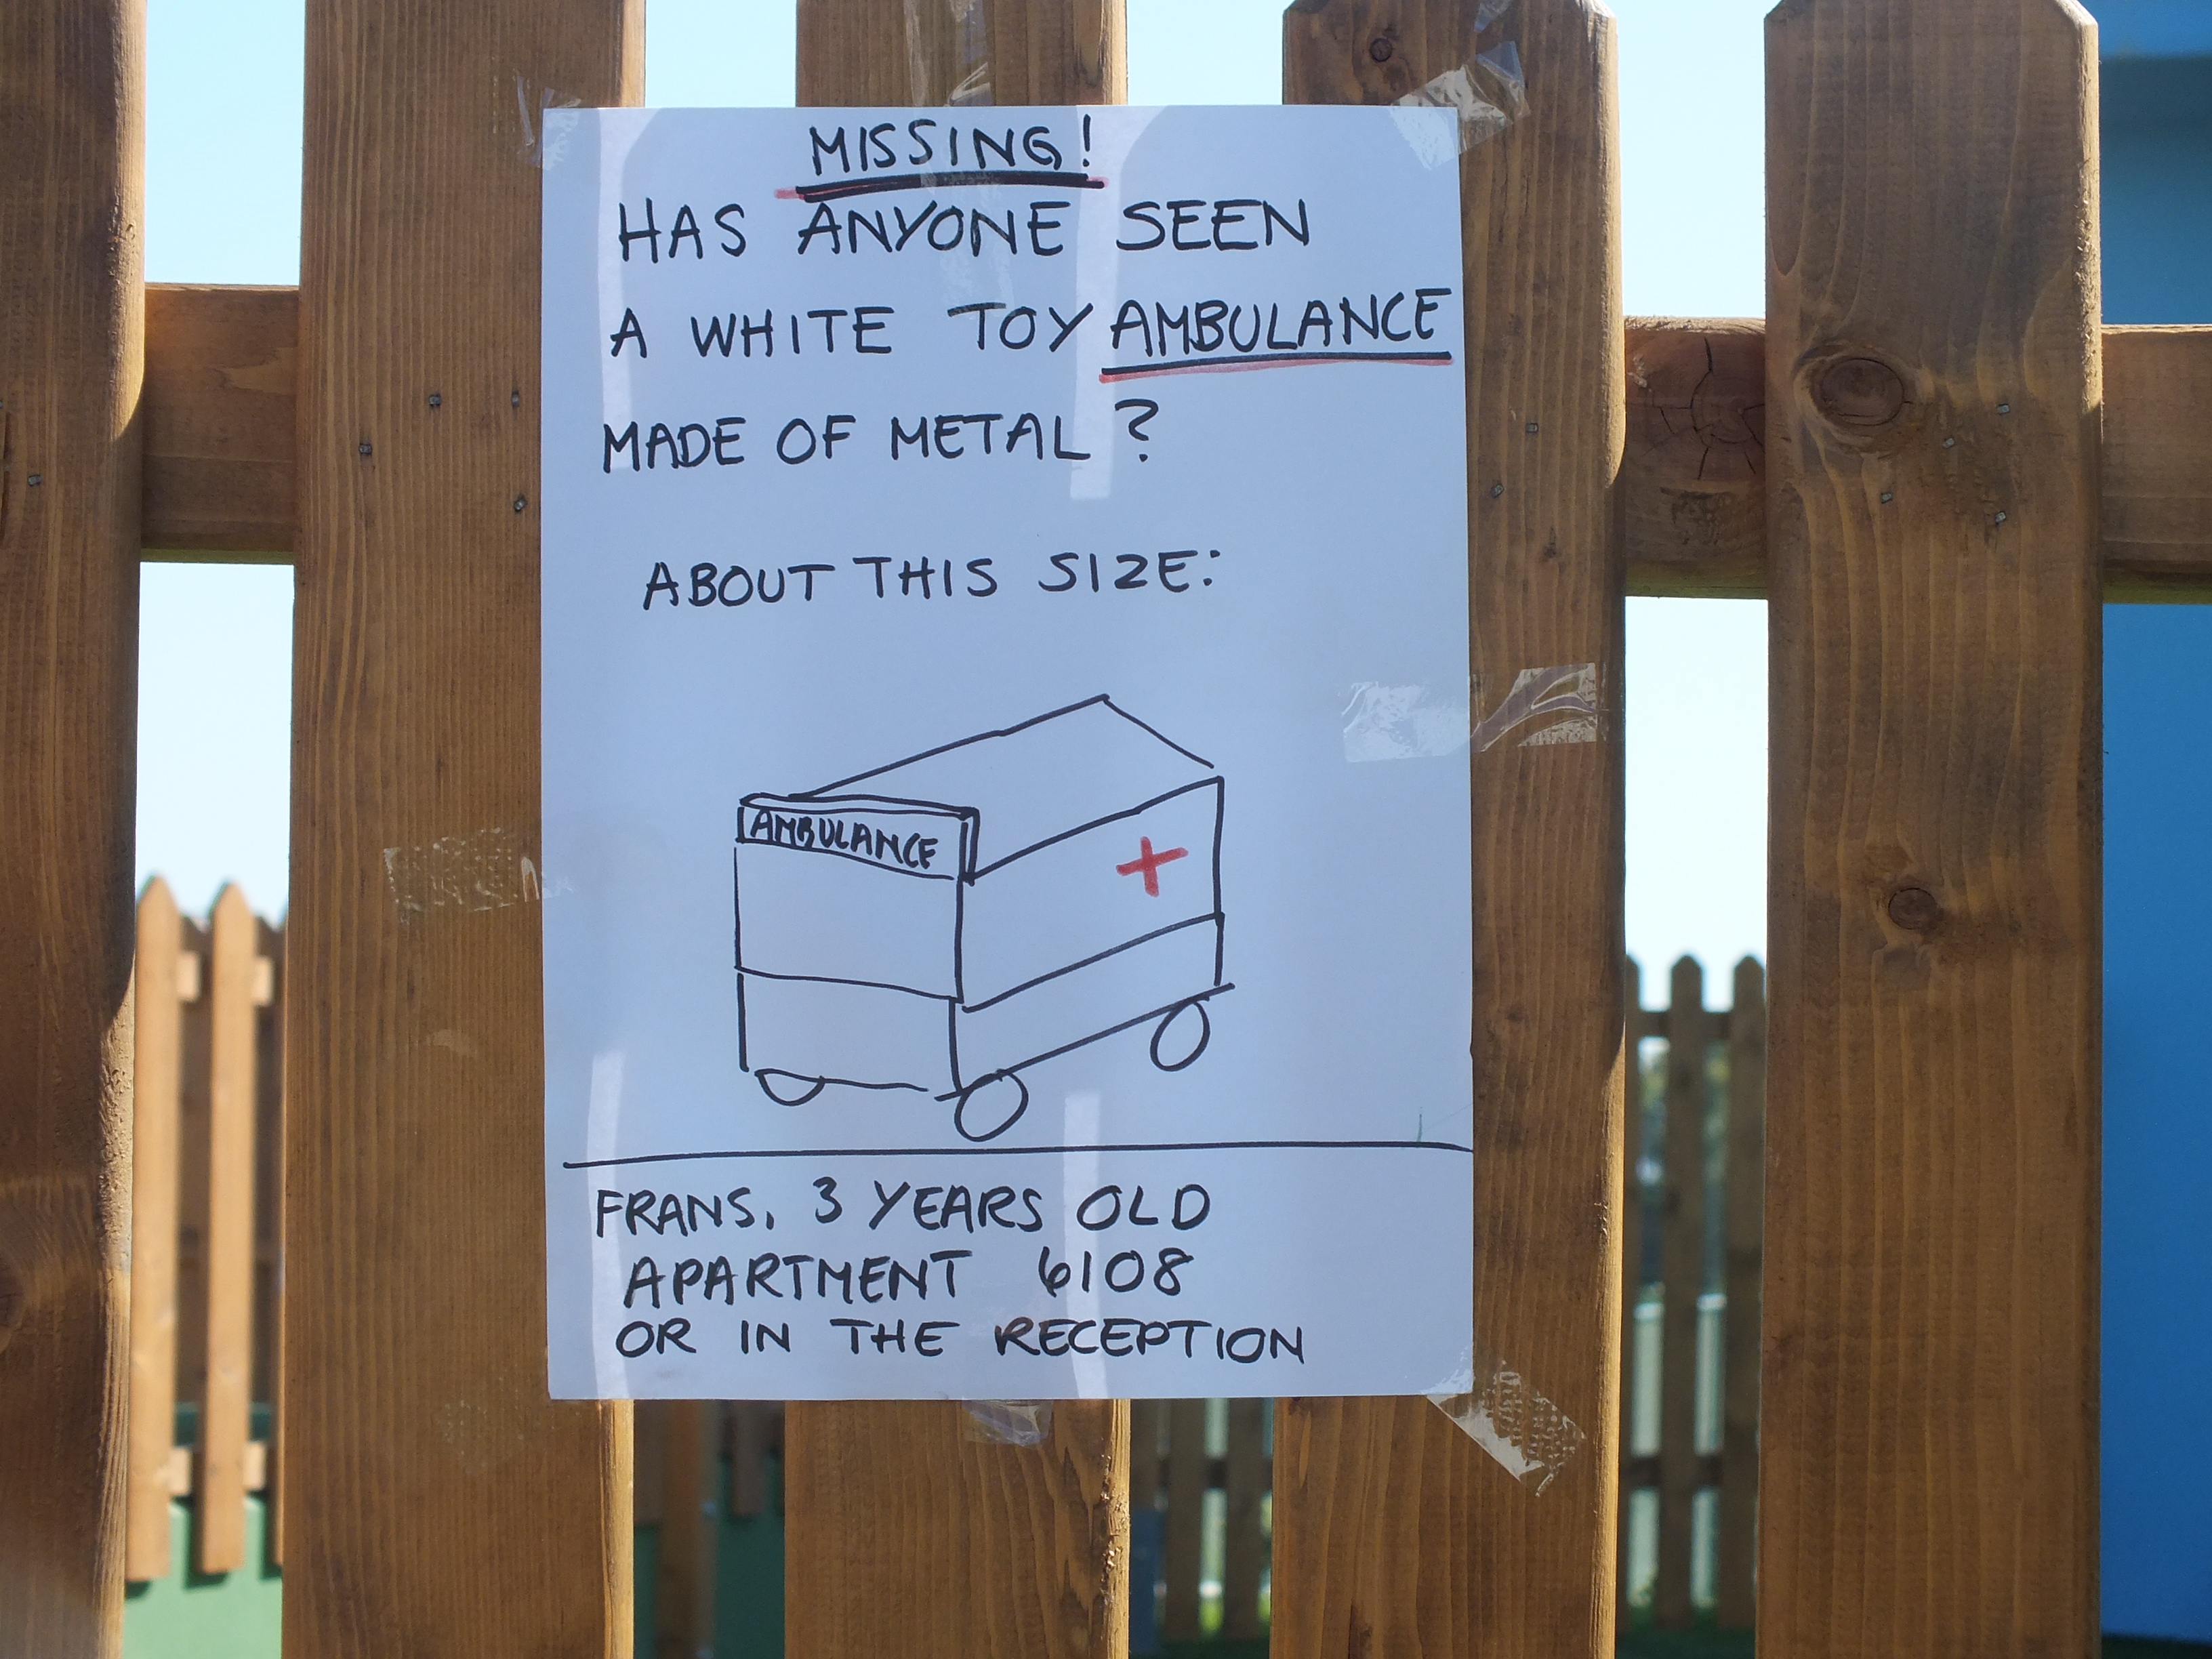 MISSING!
HAS ANYONE SEEN
A WHITE TOY AMBULANCE
MADE OF METAL?
ABOUT THIS SIZE:
AMBULANCE
FRANS, 3 YEARS OLD
APARTMENT 6108
OR IN THE RECEPTION